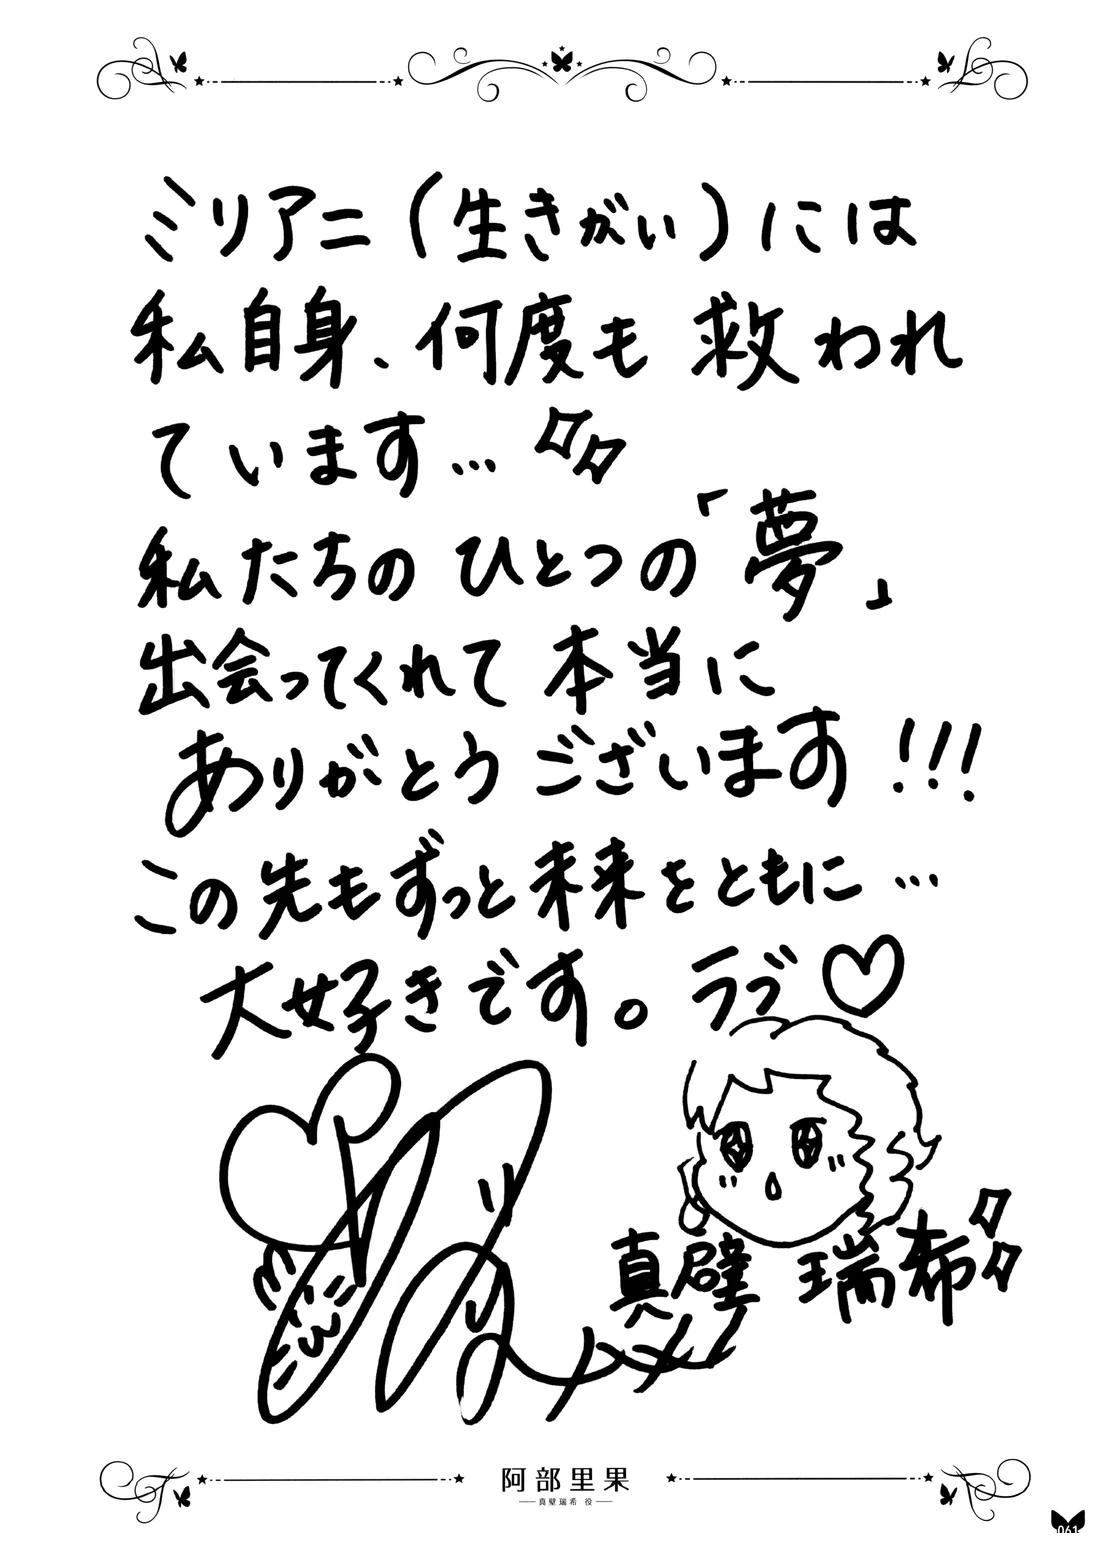 ミリアニ(生きがい)には
私自身、何度も救われ
ています…
私たちのひとつの「夢」
出会ってくれて本当に
ありがとうございます!!!
この先もずっと未来をともに…
大好きです。ラブ♡
真壁瑞希
阿部里果
真壁瑞希 役
061